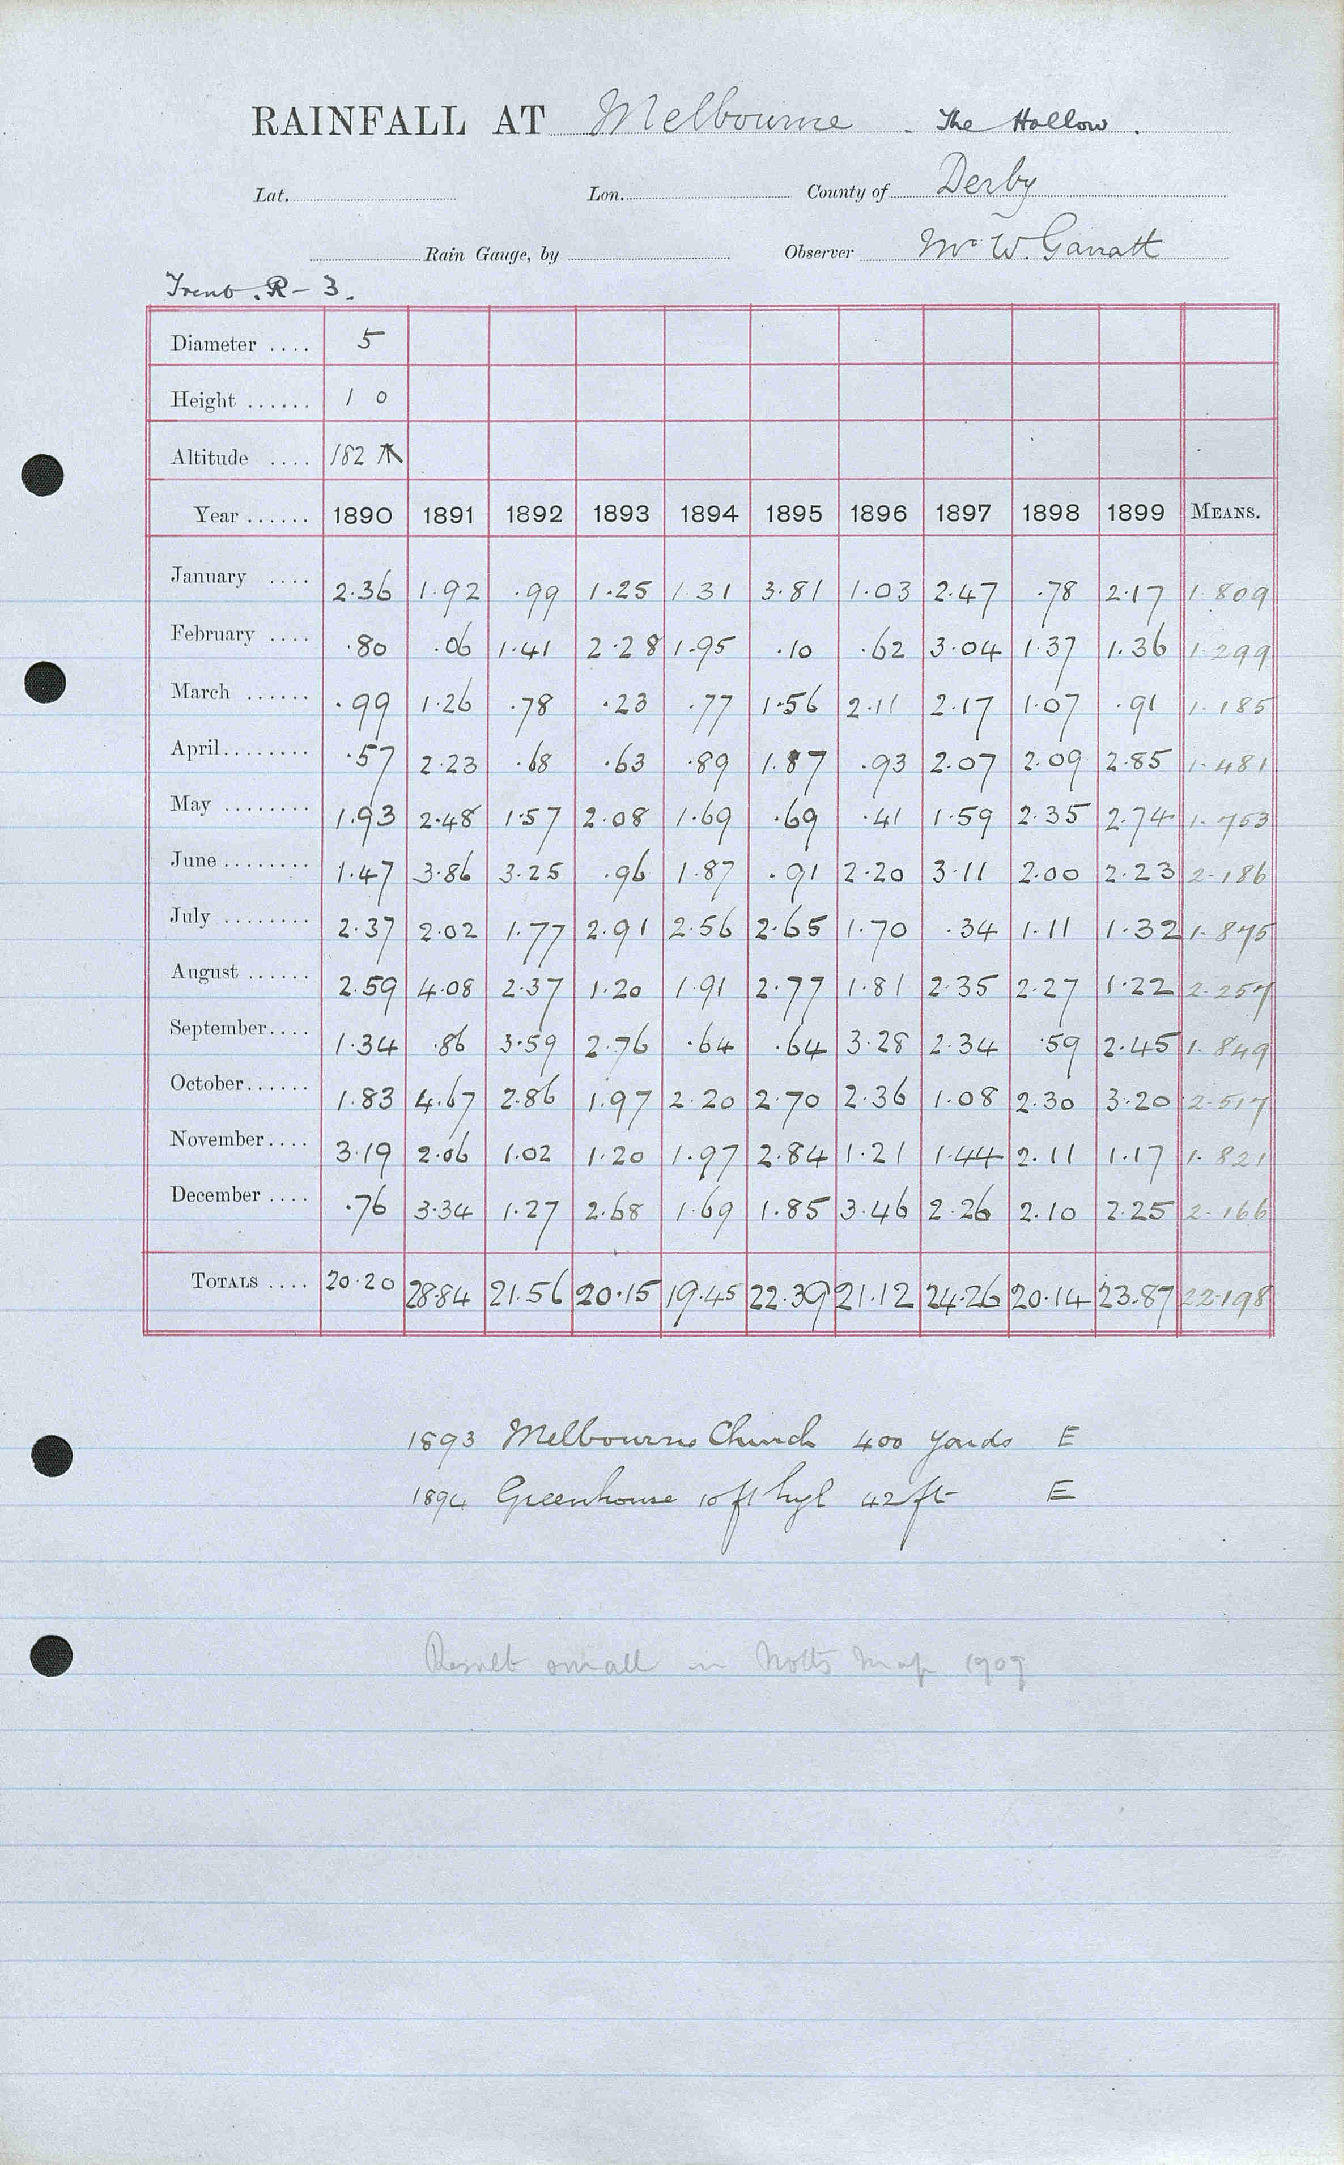 RAINFALL AT Melbourne - The Hollow.
Lat. Lon. County of Derby
Rain Gauge, by Observer Mr W. Garratt
Trent. R - 3.
Diameter .... 5
Height ...... 1 0
Altitude .... 182
Year ...... 1890 1891 1892 1893 1894 1895 1896 1897 1898 1899 MEANS.
January .... 2.36 1.92 .99 1.25 1.31 3.81 1.03 2.47 .78 2.17 1.809
February .... .80 .06 1.41 2.28 1.95 .10 .62 3.04 1.37 1.36 1.299
March ...... .99 1.26 .78 .23 .77 1.56 2.11 2.17 1.07 .91 1.185
April ........ .57 2.23 .68 .63 .89 1.87 .93 2.07 2.09 2.85 1.481
May ........ 1.93 2.48 1.57 2.08 1.69 .69 .41 1.59 2.35 2.74 1.753
June ........ 1.47 3.86 3.25 .96 1.87 .91 2.20 3.11 2.00 2.23 2.186
July ........ 2.37 2.02 1.77 2.91 2.56 2.65 1.70 .34 1.11 1.32 1.875
August ...... 2.59 4.08 2.37 1.20 1.91 2.77 1.81 2.35 2.27 1.22 2.257
September .... 1.34 .86 3.59 2.76 .64 .64 3.28 2.34 .59 2.45 1.849
October ...... 1.83 4.67 2.86 1.97 2.20 2.70 2.36 1.08 2.30 3.20 2.517
November .... 3.19 2.06 1.02 1.20 1.97 2.84 1.21 1.44 2.11 1.17 1.821
December .... .76 3.34 1.27 2.68 1.69 1.85 3.46 2.26 2.10 2.25 2.166
TOTALS .... 20.20 28.84 21.56 20.15 19.45 22.39 21.12 24.26 20.14 23.87 22.198
1893 Melbourne Church 400 yards E
1894 Greenhouse 10 ft high 42 ft E
Result small in Notts Map 1909